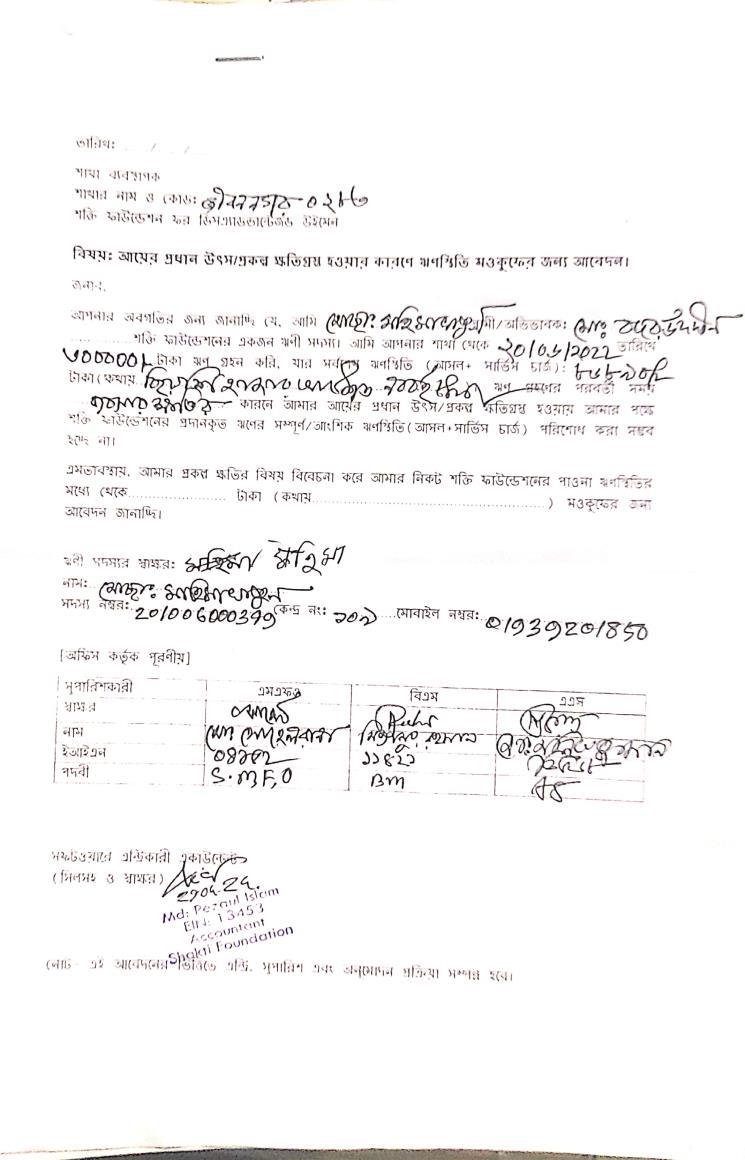 তারিখ: ...../...../.....
শাখা ব্যবস্থাপক
শাখার নাম ও কোড: জীবননগর-০২৮৬
শক্তি ফাউন্ডেশন ফর ডিসএ্যাডভান্টেজড উইমেন
বিষয়: আয়ের প্রধান উৎস/প্রকল্প ক্ষতিগ্রস্থ হওয়ার কারণে ঋণস্থিতি মওকুফের জন্য আবেদন।
জনাব,
আপনার অবগতির জন্য জানাচ্ছি যে, আমি মোছা: মাহিমা খাতুন স্বামী/অভিভাবক: মোঃ বদরউদ্দীন
............শক্তি ফাউন্ডেশনের একজন ঋণী সদস্য। আমি আপনার শাখা থেকে ২০/০৬/২০২২ তারিখে
টাকা ঋণ গ্রহন করি, যার সর্বশেষ ঋণস্থিতি (আসল+ সার্ভিস চার্জ):
টাকা (কথায় হাজার নব্বই ঋণ গ্রহণের পরবর্তী সময়
ব্যবসার ক্ষতির কারনে আমার আয়ের প্রধান উৎস/প্রকল্প ক্ষতিগ্রস্থ হওয়ায় আমার পক্ষে
শক্তি ফাউন্ডেশনের প্রদানকৃত ঋণের সম্পূর্ণ/আংশিক ঋণস্থিতি(আসল+সার্ভিস চার্জ) পরিশোধ করা সম্ভব
হচ্ছে না।
এমতাবস্থায়, আমার প্রকল্প ক্ষতির বিষয় বিবেচনা করে আমার নিকট শক্তি ফাউন্ডেশনের পাওনা ঋণস্থিতির
মধ্যে থেকে........................ টাকা (কথায়..................................................) মওকুফের জন্য
আবেদন জানাচ্ছি।
ঋণী সদস্যর স্বাক্ষর: মাহিমা
নাম: মোছা: মাহিমা খাতুন
সদস্য নম্বর: কেন্দ্র নং: ১০৯ ....মোবাইল নম্বর: 01939201850
[অফিস কর্তৃক পূরণীয়]
সুপারিশকারী এমএফও বিএম এএস
স্বাক্ষর
নাম মোঃ সোহেল রানা মিজানুর রহমান
ইআইএন ১১৪২১
পদবী S.M.F.O BM AS
সফটওয়ারে এন্ট্রিকারী একাউন্টেন্ট
(সিলসহ ও স্বাক্ষর)
Md: Rezaul Islam
EIN: 13453
Accountant
Shakti Foundation
নোট- এই আবেদনের ভিত্তিতে এন্ট্রি, সুপারিশ এবং অনুমোদন প্রক্রিয়া সম্পন্ন হবে।